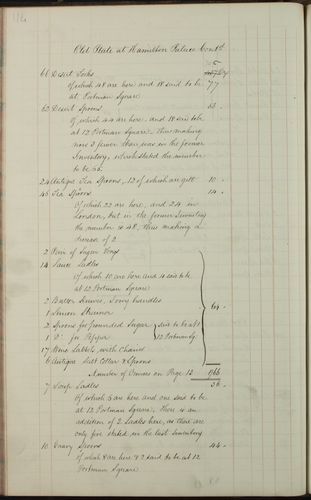 116
Old Plate at Hamilton Palace Contd.
66 Desert Forks
of which 48 are here and 18 said to be 77
at Portman Square
62 Desert Spoons
of which 44 are here and 18 said to be
at 12 Portman Square - thus making
now 3 fewer than was in the former
Inventory, which stated the number
to be 65.
24 Antique Tea Spoons, 12 of which are gilt 10 "
46 Tea Spoons 14 "
of which 22 are here, and 24 in
London, but in the former Inventory
the number is 48, thus making a
decrease of 2
2 Pair of Sugar Tongs
14 Sauce Ladles
of which 10 are here and 4 said to be
at 12 Portman Square
2 Butter Knives, Ivory handles 64 "
1 Lemon Strainer
2 Spoons for pounded Sugar said to be at
1 Do. for Pepper 12 Portman Sq.
17 Wine Labels with Chains
6 Antique Salt Cellars & Spoons
Number of Ounces on Page 12
7 Soup Ladles 56 "
of which 6 are here and one said to be
at 12 Portman Square. There is an
addition of 2 Ladles here, as there are
only five stated in the last Inventory
10 Gravy Spoons 44 "
of which 8 are here & 2 said to be at 12
Portman Square